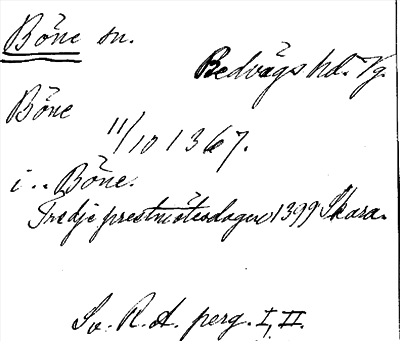 Böne sn.
Redvägs hd. Vg.
Böne
11/10 1367.
i .. Böne.
Tredje prestmötesdagen, 1399 Skara.
Sv. R. A. perg. I, II.